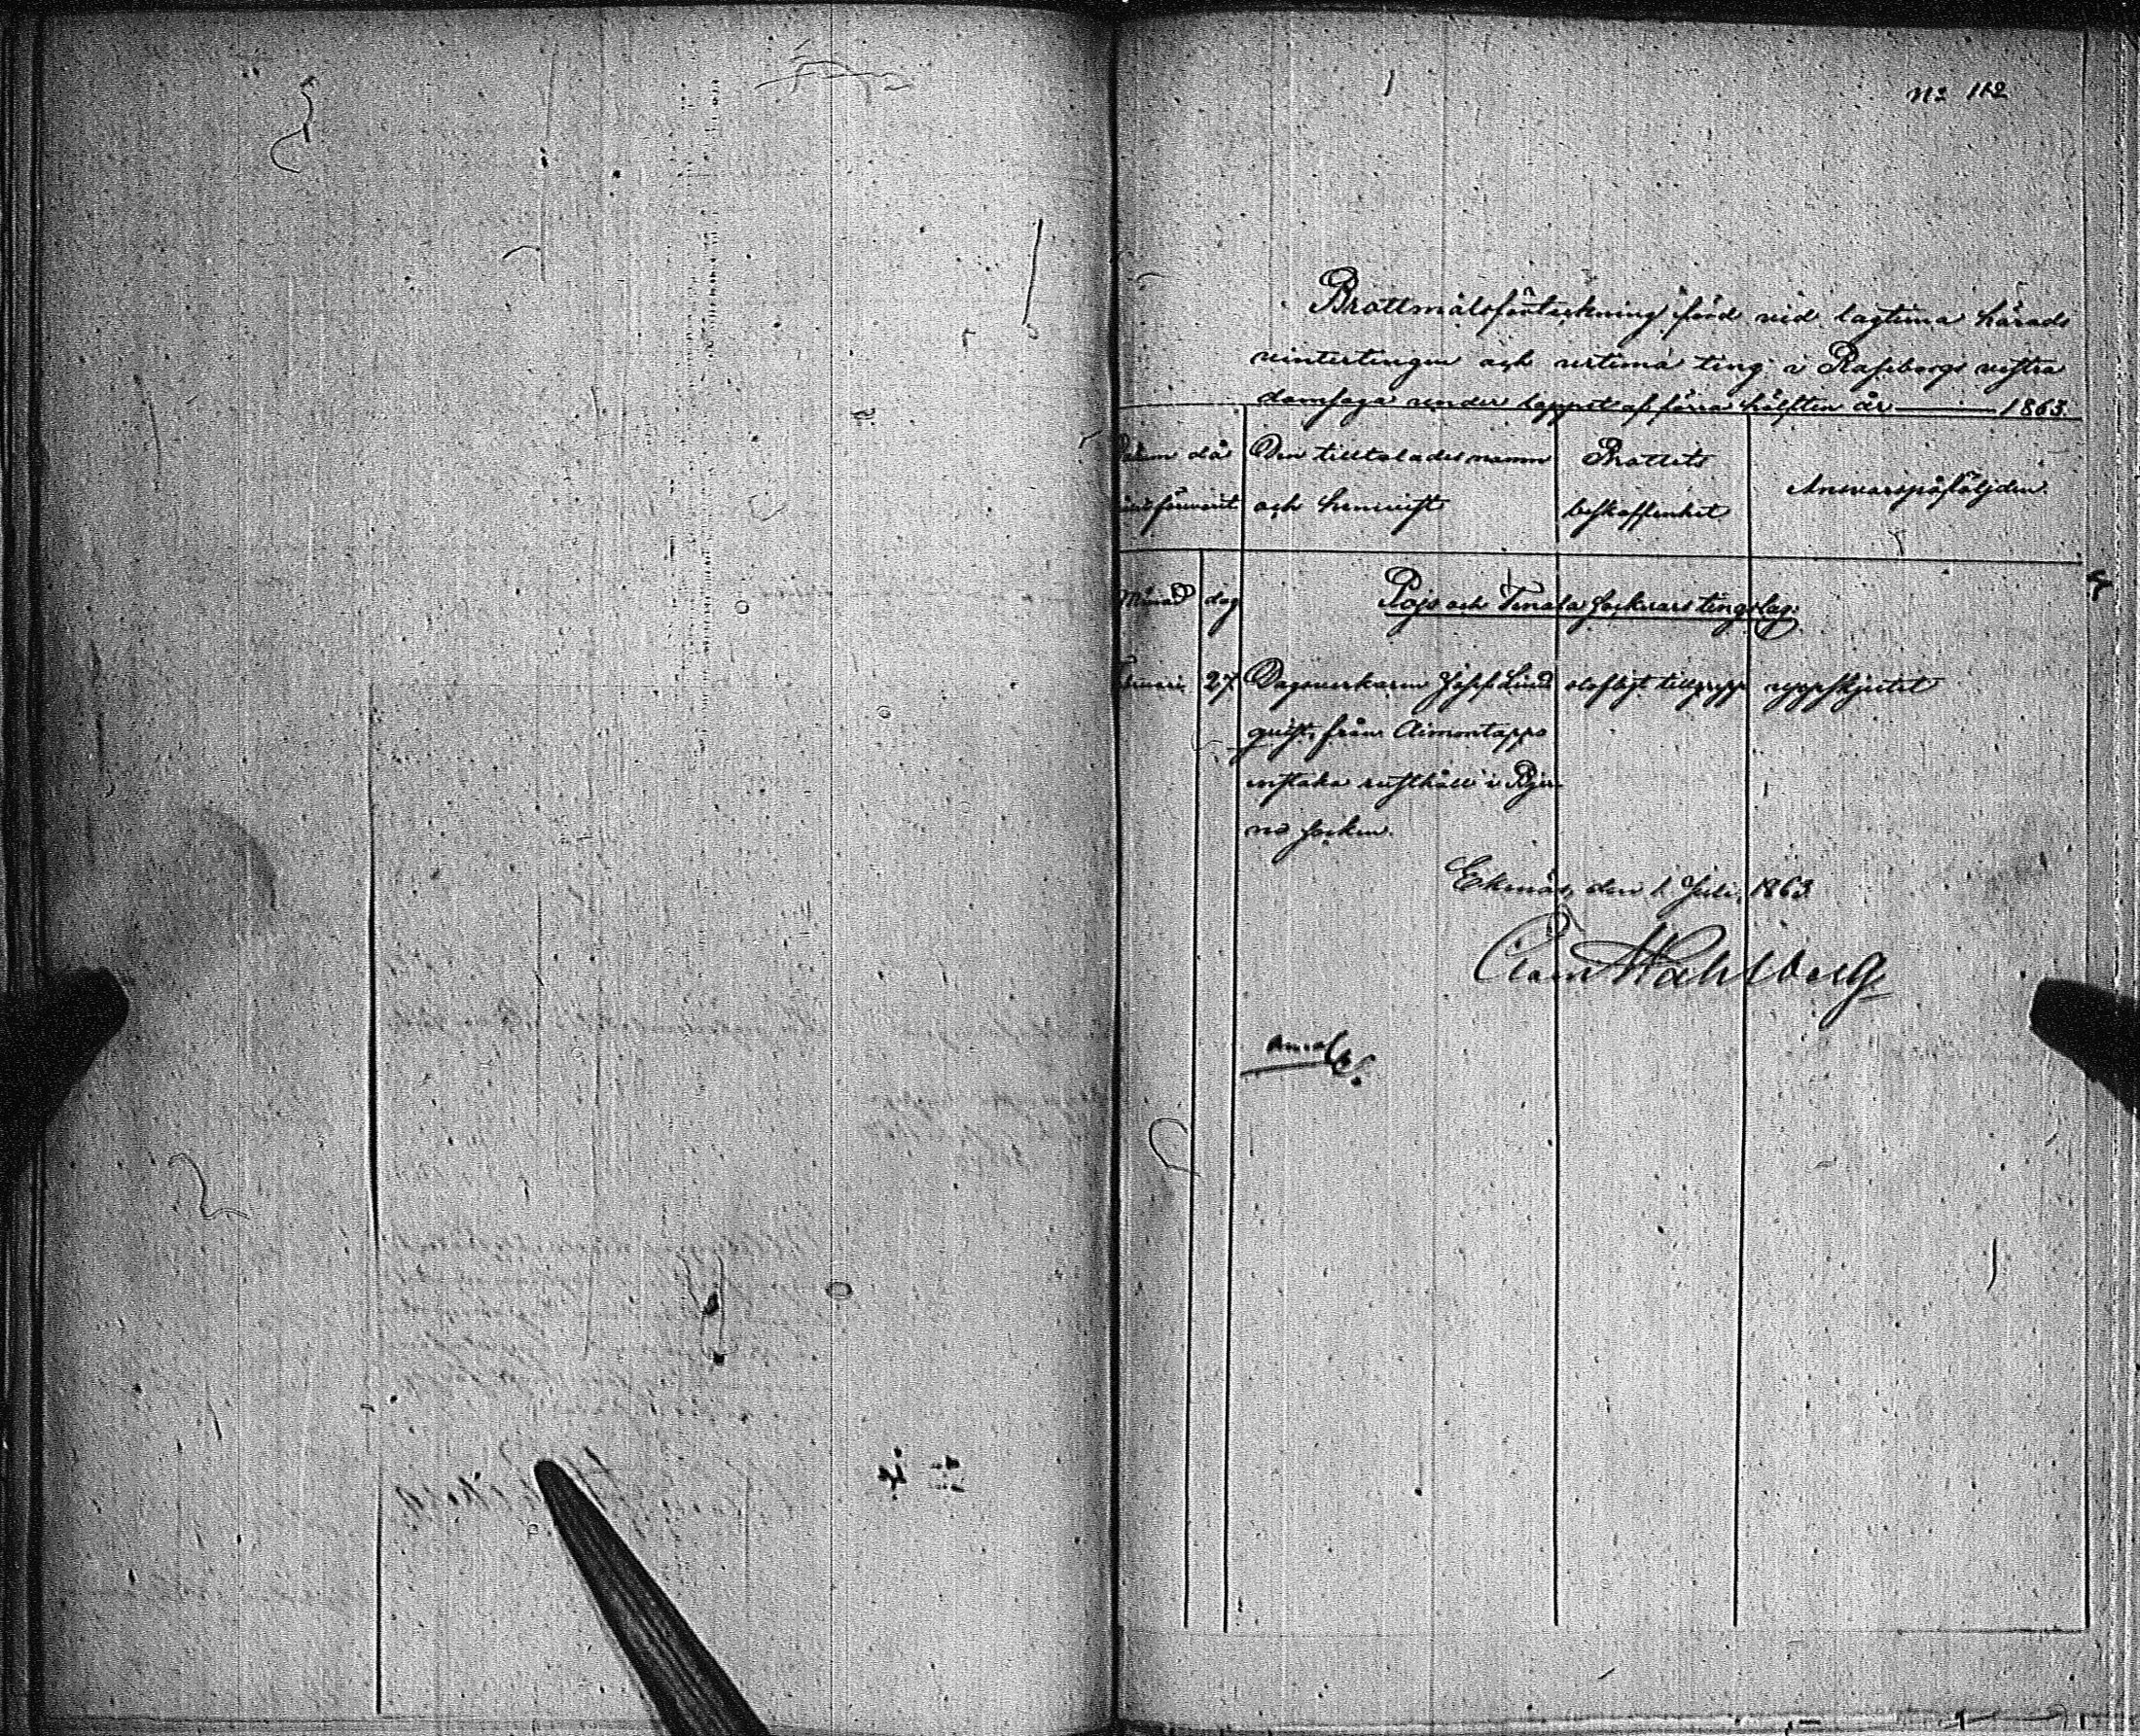 No 112
Brottmålsförteckning förd vid lagtima härads
vintertingen och urtima ting i Raseborgs vestra
domsaga under loppet af förra hälften år — 1863.
då
Den tilltalades namn
och hemvist
Brottets
beskaffenhet
Ansvarspåföljden.
Månad
dag
Pojo och Tenala socknars tingslag.
Februari
27
Dagsverkaren Josef Lind
qvist, från Aimontappo
rusthåll i Bjer
no socken.
olofligt tillgrepp
uppskjutet
Ekenäs, den 1 Juli 1863
Claes Wahlberg